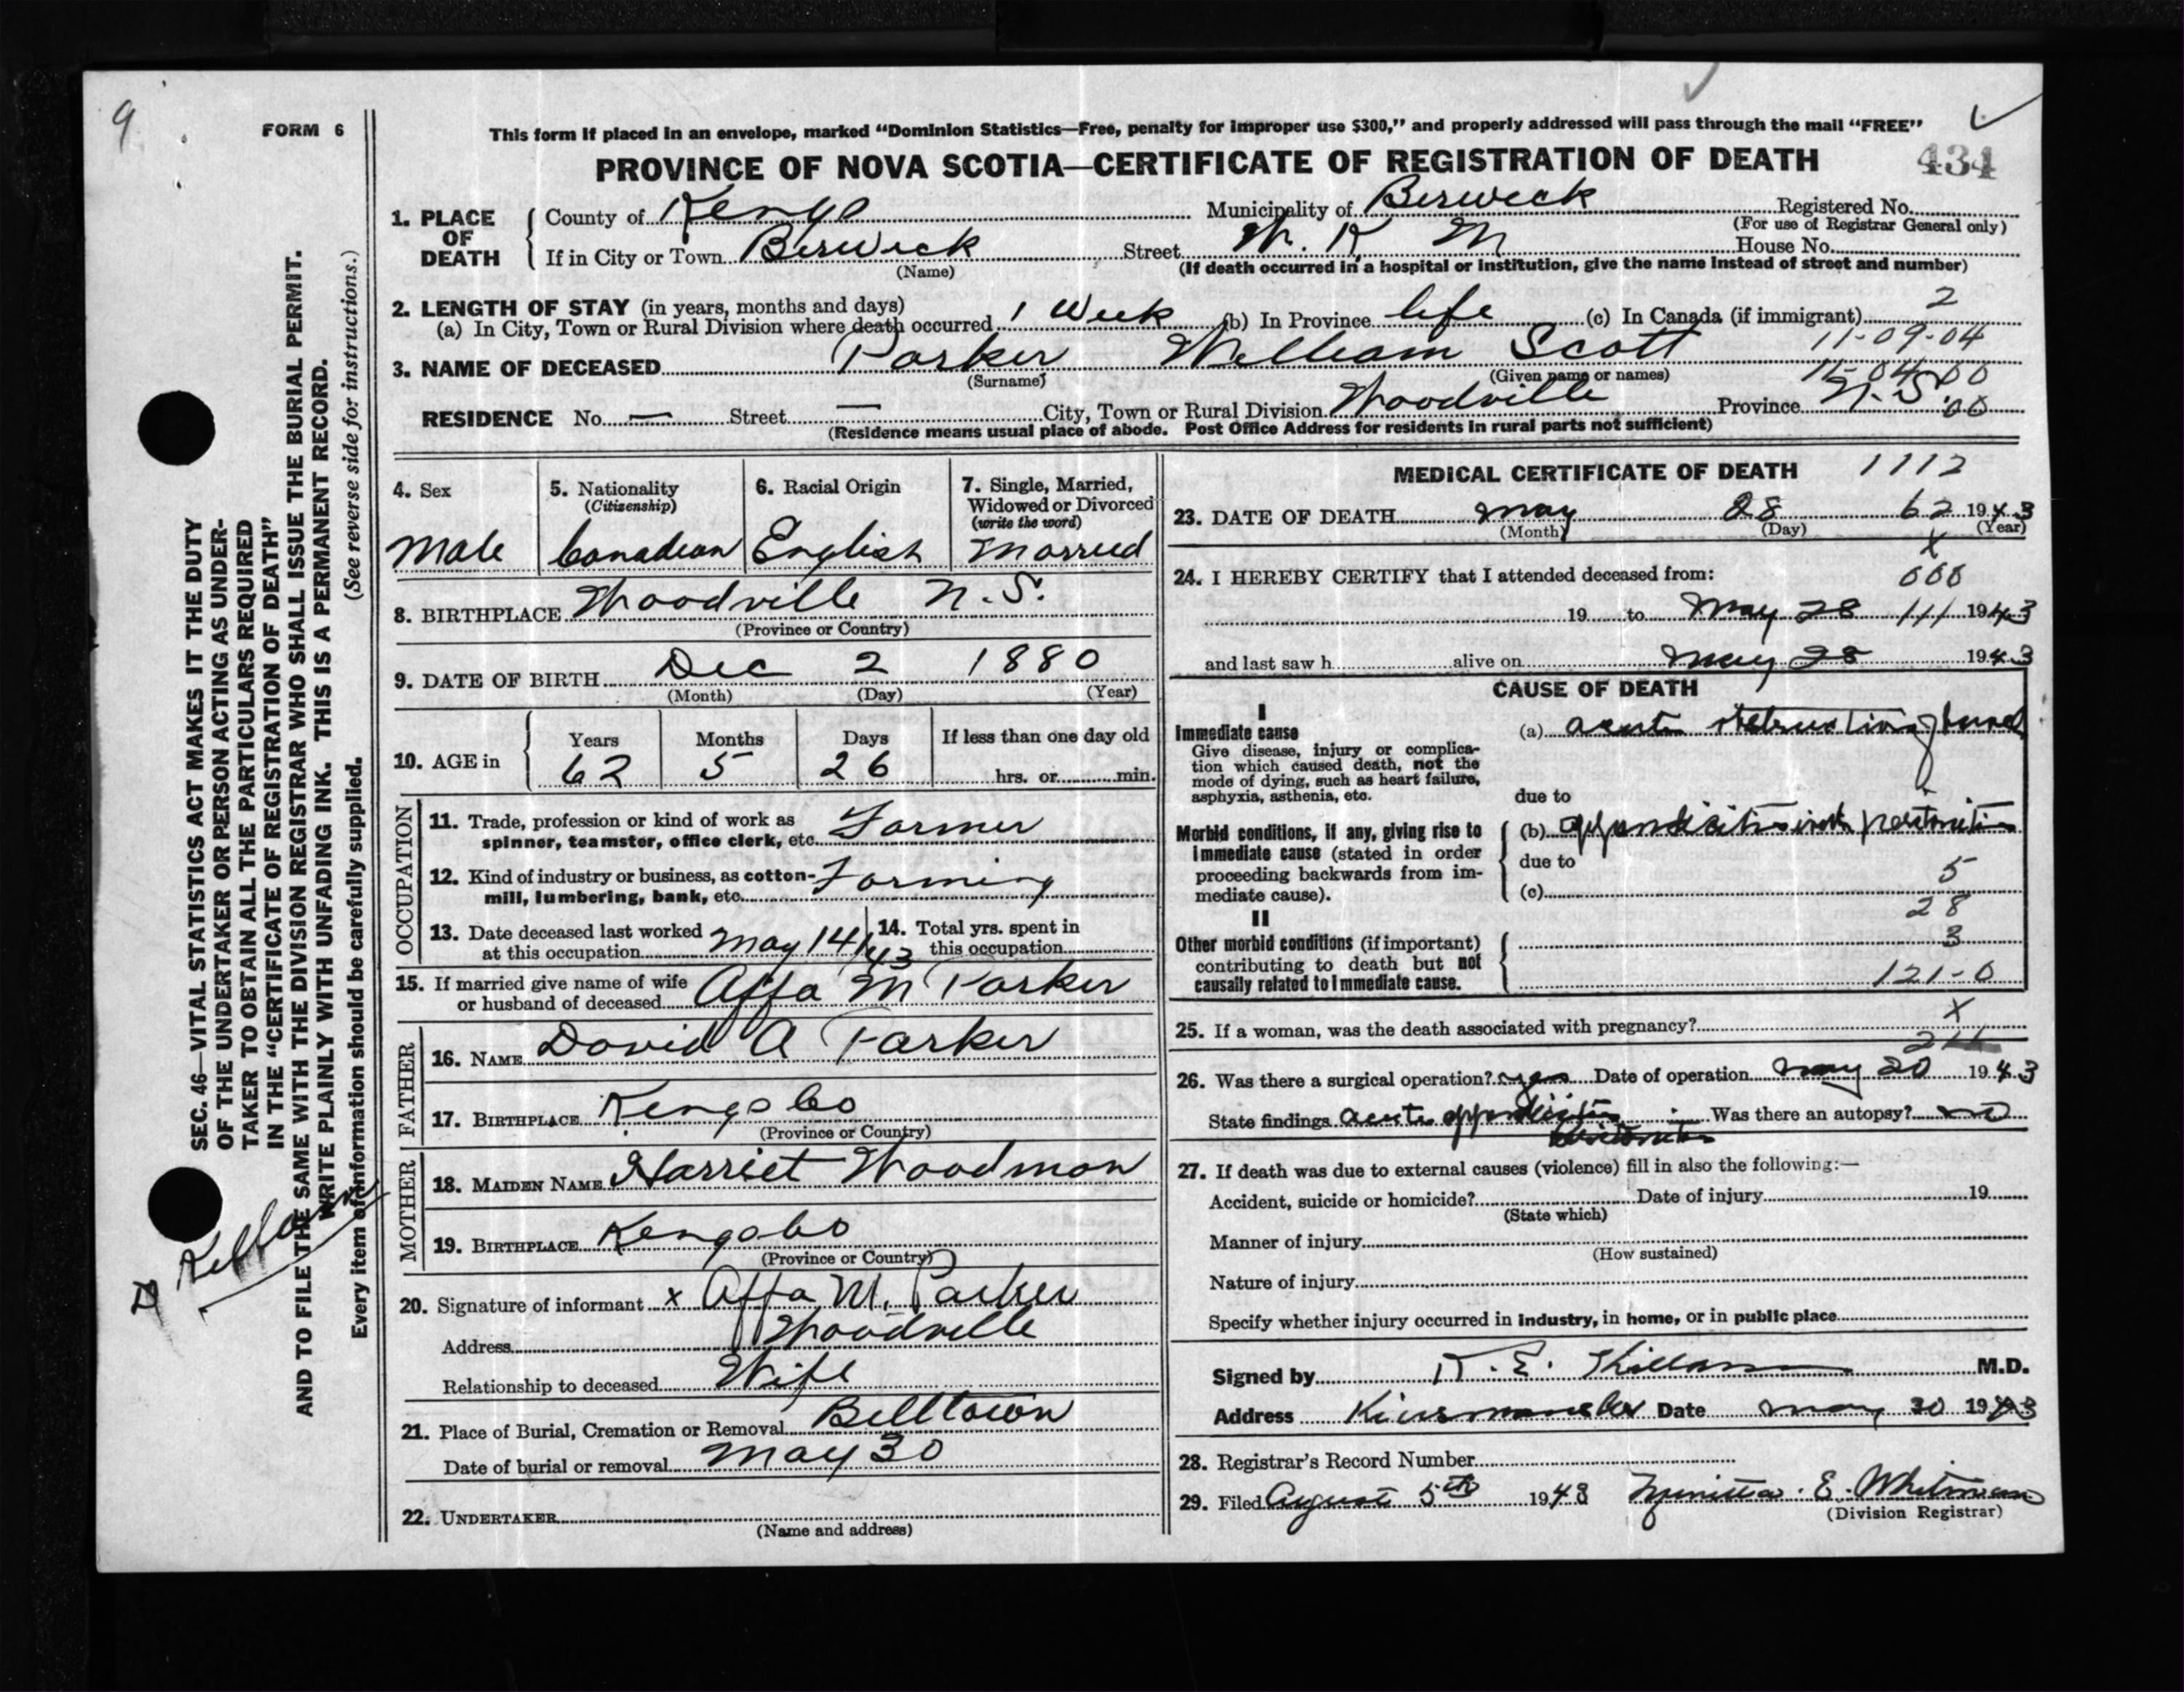 9
FORM 6
This form if placed in an envelope, marked “Dominion Statistics—Free, penalty for improper use $300,” and properly addressed will pass through the mail “FREE”
PROVINCE OF NOVA SCOTIA—CERTIFICATE OF REGISTRATION OF DEATH 434
1. PLACE OF DEATH
County of Kings Municipality of Berwick Registered No.
(For use of Registrar General only)
If in City or Town Berwick Street W. K M House No.
(Name) (If death occurred in a hospital or institution, give the name instead of street and number)
2. LENGTH OF STAY (in years, months and days) 2
(a) In City, Town or Rural Division where death occurred 1 Week (b) In Province life (c) In Canada (if immigrant)
11-09-04
3. NAME OF DECEASED Parker William Scott
(Surname) (Given name or names) 11-04-00
RESIDENCE No. — Street — City, Town or Rural Division Woodville Province N.S. 00
(Residence means usual place of abode. Post Office Address for residents in rural parts not sufficient)
4. Sex
Male
5. Nationality
(Citizenship)
Canadian
6. Racial Origin
English
7. Single, Married,
Widowed or Divorced
(write the word)
Married
8. BIRTHPLACE Woodville N.S.
(Province or Country)
9. DATE OF BIRTH Dec 2 1880
(Month) (Day) (Year)
10. AGE in
Years Months Days If less than one day old
62 5 26 hrs. or min.
OCCUPATION
11. Trade, profession or kind of work as
spinner, teamster, office clerk, etc. Farmer
12. Kind of industry or business, as cotton-
mill, lumbering, bank, etc. Farming
13. Date deceased last worked
at this occupation May 14/43
14. Total yrs. spent in
this occupation
15. If married give name of wife
or husband of deceased Affa M Parker
FATHER
16. NAME David A Parker
17. BIRTHPLACE Kings Co
(Province or Country)
MOTHER
18. MAIDEN NAME Harriet Woodman
19. BIRTHPLACE Kings Co
(Province or Country)
20. Signature of informant x Affa M. Parker
Address Woodville
Relationship to deceased Wife
21. Place of Burial, Cremation or Removal Billtown
Date of burial or removal May 30
22. UNDERTAKER
(Name and address)
MEDICAL CERTIFICATE OF DEATH 1112
23. DATE OF DEATH May 28 62 1943
(Month) (Day) (Year)
x
24. I HEREBY CERTIFY that I attended deceased from: 000
19 to May 28 111 1943
and last saw h alive on May 28 1943
CAUSE OF DEATH
I
Immediate cause
Give disease, injury or complica-
tion which caused death, not the
mode of dying, such as heart failure,
asphyxia, asthenia, etc.
(a) acute obstruction of bowel
due to
Morbid conditions, if any, giving rise to
immediate cause (stated in order
proceeding backwards from im-
mediate cause).
(b) appendicitis with peritonitis
due to
5
(c)
28
II
Other morbid conditions (if important)
contributing to death but not
causally related to immediate cause.
3
121-0
x
25. If a woman, was the death associated with pregnancy?
26. Was there a surgical operation? yes Date of operation May 20 1943
State findings acute appendicitis Was there an autopsy? no
peritonitis
27. If death was due to external causes (violence) fill in also the following:—
Accident, suicide or homicide? Date of injury 19
(State which)
Manner of injury
(How sustained)
Nature of injury
Specify whether injury occurred in industry, in home, or in public place
Signed by R. E. Killam M.D.
Address Date May 30 1943
28. Registrar's Record Number
29. Filed August 5th 1943 E. Whitman
(Division Registrar)
SEC. 46—VITAL STATISTICS ACT MAKES IT THE DUTY
OF THE UNDERTAKER OR PERSON ACTING AS UNDER-
TAKER TO OBTAIN ALL THE PARTICULARS REQUIRED
IN THE “CERTIFICATE OF REGISTRATION OF DEATH”
AND TO FILE THE SAME WITH THE DIVISION REGISTRAR WHO SHALL ISSUE THE BURIAL PERMIT.
WRITE PLAINLY WITH UNFADING INK. THIS IS A PERMANENT RECORD.
(See reverse side for instructions.)
Every item of information should be carefully supplied.